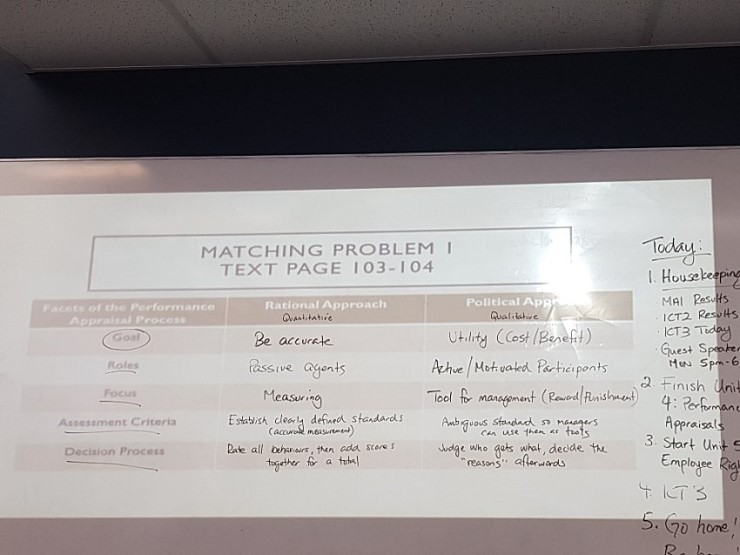 MATCHING PROBLEM 1
TEXT PAGE 103-104
Facets of the Performance
Appraisal Process
Rational Approach
Quantitative
Political Appr
Qualitative
Goal
Be accurate
Utility (Cost/Benefit)
Roles
Passive agents
Active/Motivated Participants
Focus
Measuring
Tool for management (Reward/Punishment)
Assessment Criteria
Establish clearly defined standards
(accurate measurement)
Ambiguous standard so managers
can use them as tools
Decision Process
Rate all behaviours, then add scores
together for a total
Judge who gets what, decide the
"reasons" afterwards
Today:
1. Housekeeping
MA1 Results
· ICT2 Results
· ICT3 Today
· Guest Speaker
Mon 5pm-6
2. Finish Unit
4: Performanc
Appraisals
3. Start Unit 5
Employee Rig
4. ICT3
5. Go home!